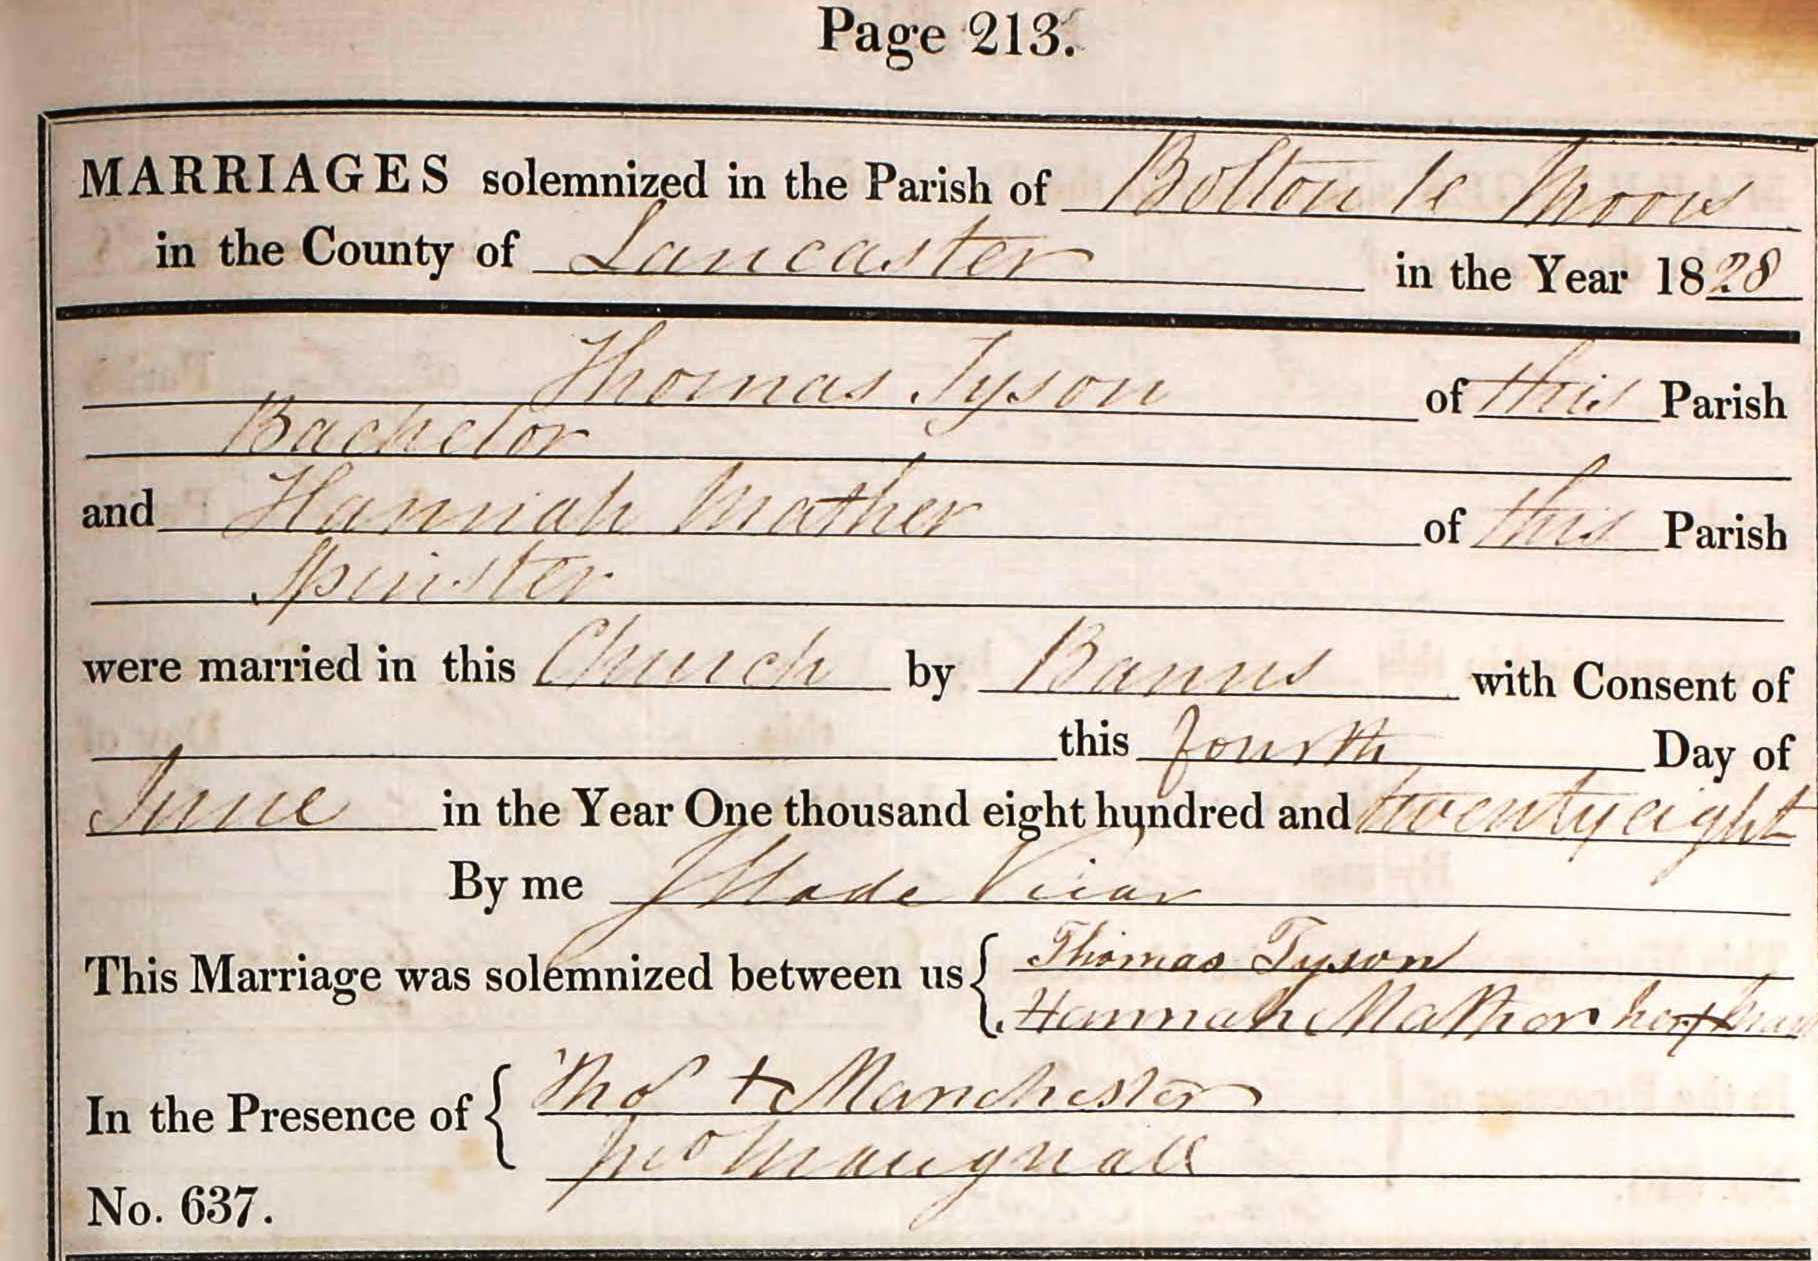 Page 213.
MARRIAGES solemnized in the Parish of Bolton le Moors
in the County of Lancaster in the Year 1828
Thomas Tyson of this Parish
Bachelor
and Hannah Mather of this Parish
Spinster
were married in this Church by Banns with Consent of
this fourth Day of
June in the Year One thousand eight hundred and twenty eight
By me J Slade Vicar
This Marriage was solemnized between us { Thomas Tyson
Hannah Mather her + mark
In the Presence of { Thos + Manchester
Jno Maugnall
No. 637.